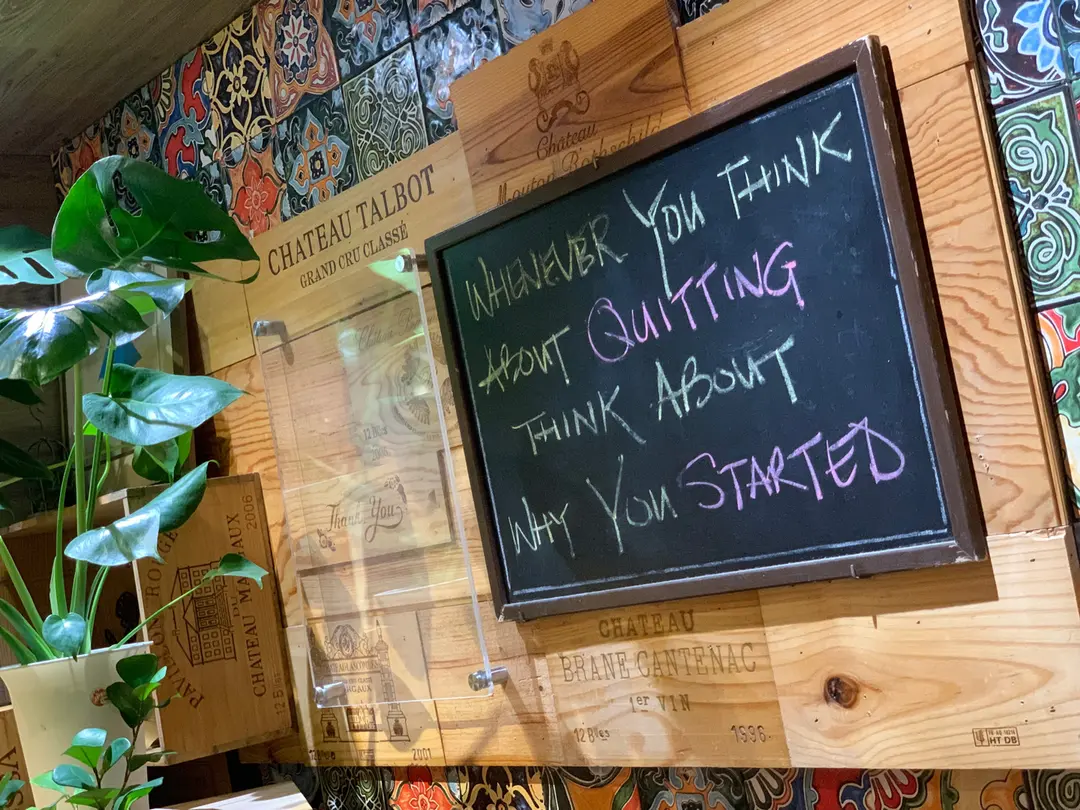 Chateau
Mouton Rothschild
CHATEAU TALBOT
GRAND CRU CLASSÉ
WHENEVER YOU THINK
ABOUT QUITTING
THINK ABOUT
WHY YOU STARTED
Thank You
PAVILLON ROUGE
DU
CHATEAU MARGAUX
2006
CHATEAU
BRANE CANTENAC
1er VIN
12 Bles
1996
2001
HT DB